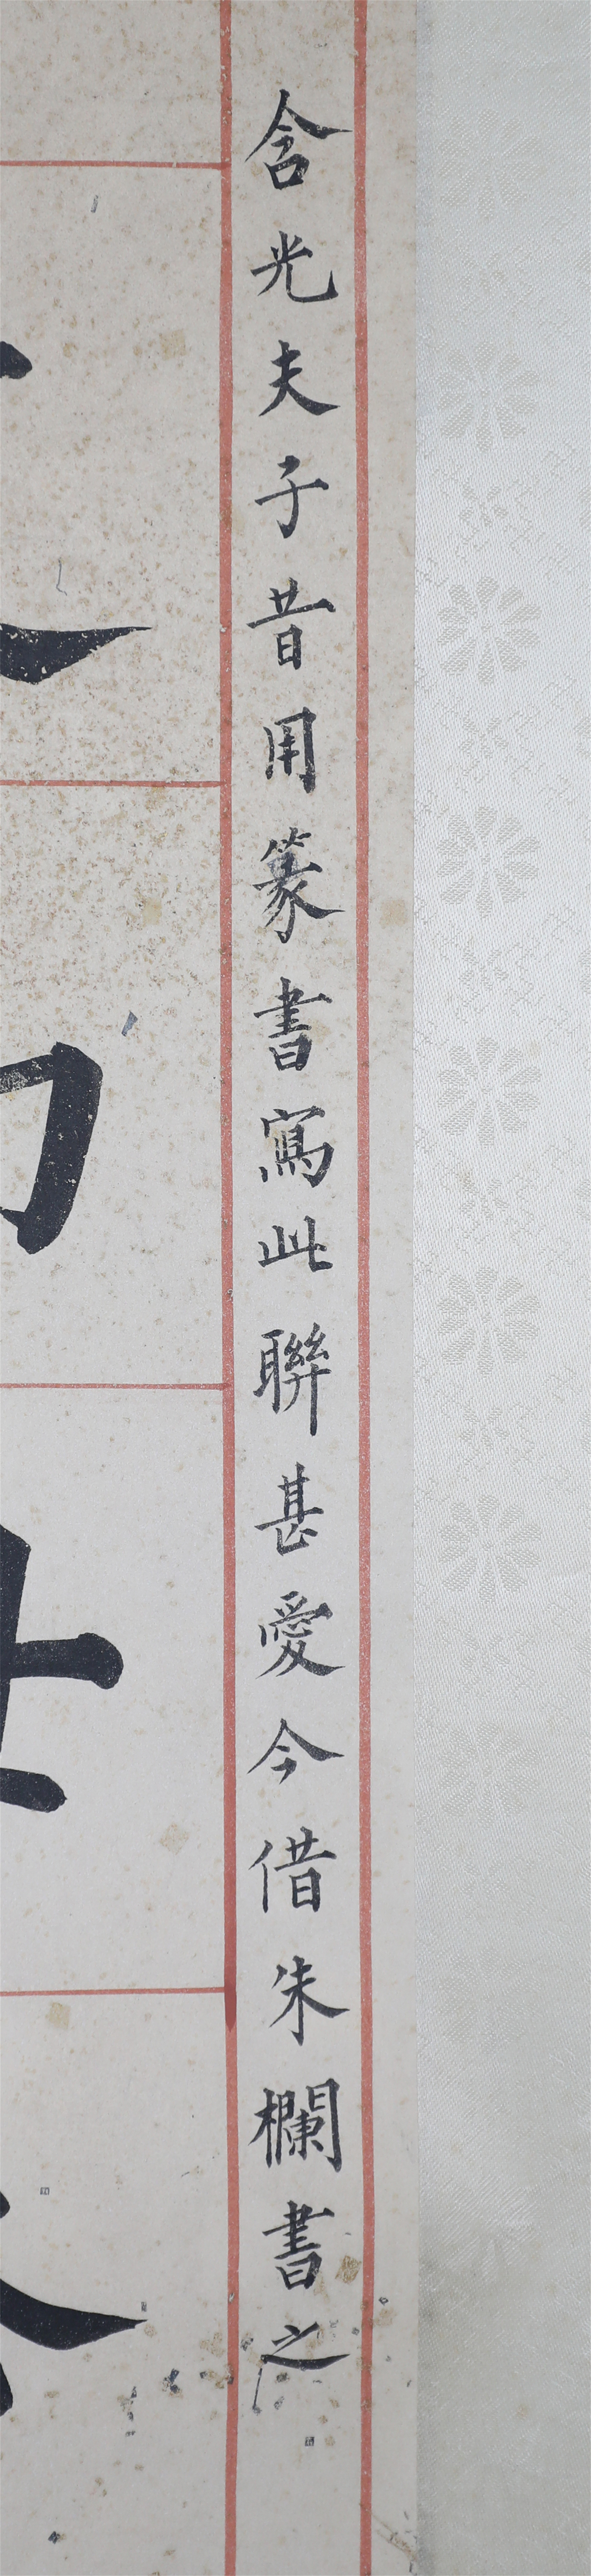 含光夫子昔用篆書寫此聯甚愛今借朱欄書之